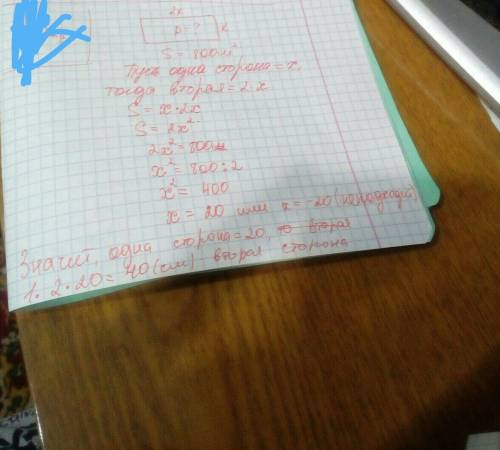 2x
p = ? x
S = 800 м²
Пусть одна сторона = x
тогда вторая = 2x
S = x·2x
S = 2x²
2x² = 800
x² = 800:2
x² = 400
x = 20 или x = -20 (не подходит)
Значит одна сторона = 20, то вторая
1. 2·20 = 40 (см) вторая сторона